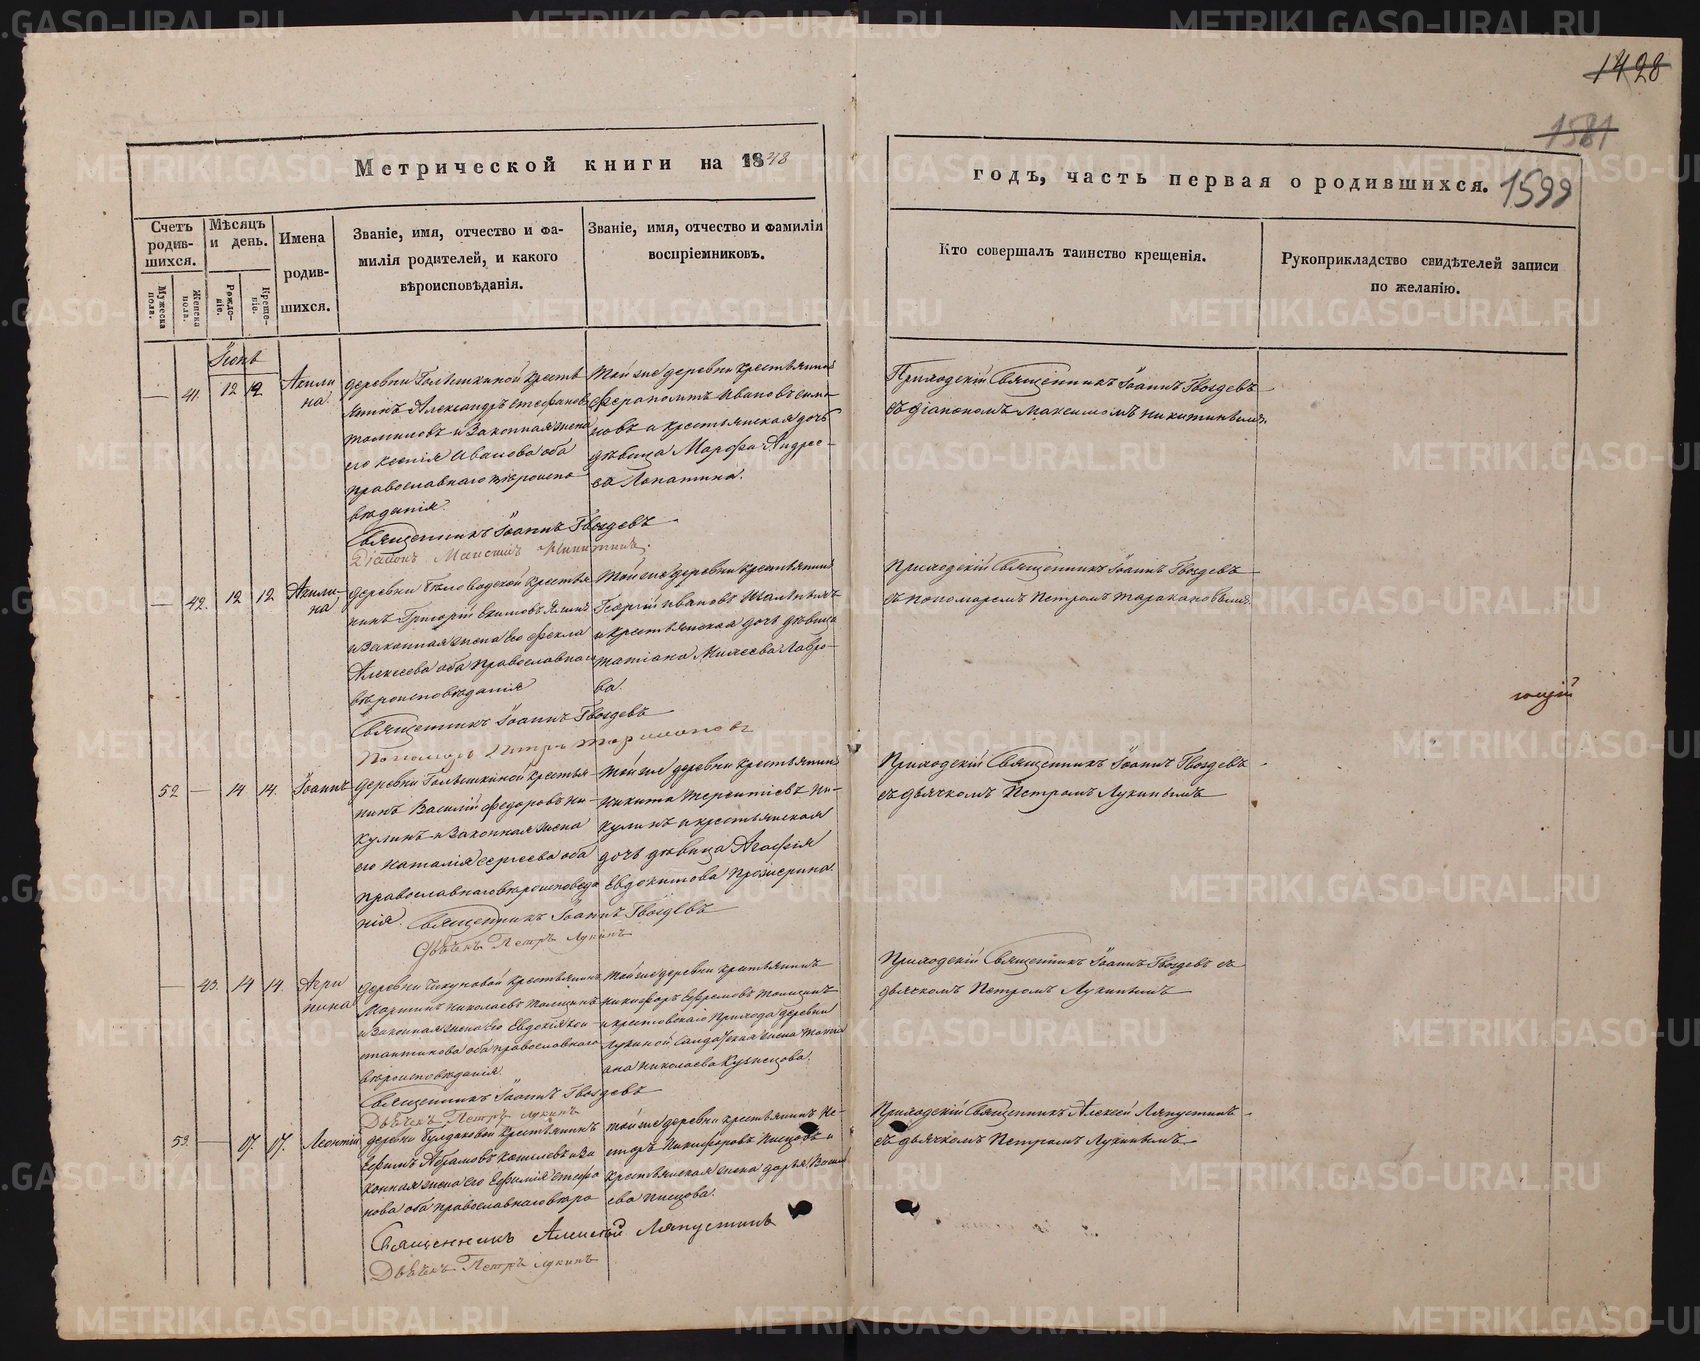 1428
1581
1599
Метрической книги на 1848
годъ, часть первая о родившихся.
Счетъ родив-шихся.
Мужеска пола.
Женска пола.
Мѣсяцъ и день.
Рожде-ніе.
Креще-ніе.
Имена
родив-
шихся.
Званіе, имя, отчество и фа-
милія родителей, и какого
вѣроисповѣданія.
Званіе, имя, отчество и фамилія
воспріемниковъ.
Кто совершалъ таинство крещенія.
Рукоприкладство свидѣтелей записи
по желанію.
Іюнь
— 41. 12 12
Акили
на
деревни Голышкиной крестья
нинъ Александръ Стефановъ
и законная жена
его Ксенія Иванова оба
православнаго вѣроиспо
вѣданія.
Священникъ Іоаннъ Гвоздевъ
Діаконъ Максимъ Никитинъ.
Той же деревни крестьянинъ
Ферапонтъ Ивановъ
и крестьянская дочь
дѣвица Марфа Андрее-
ва Лопатина.
Приходскій Священникъ Іоаннъ Гвоздевъ
съ діакономъ Максимомъ Никитинымъ.
— 42. 12 12
Акили-
на
деревни крестья
нинъ Григорій Екимовъ
и законная жена его Фекла
Алексеева оба православнаго
вѣроисповѣданія
Священникъ Іоаннъ Гвоздевъ
Пономарь Петръ Таракановъ
Той же деревни крестьянинъ
Георгій Ивановъ
и крестьянская дочь дѣвица
Татіана Михеева Лавро-
ва.
Приходскій Священникъ Іоаннъ Гвоздевъ
съ пономаремъ Петромъ Таракановымъ.
52 — 14 14.
Іоаннъ
деревни Голышкиной крестья
нинъ Василій Федоровъ Ни-
кулинъ и законная жена
его Наталія Сергеева оба
православнаго вѣроисповѣда
нія.
Священникъ Іоаннъ Гвоздевъ
Дьячекъ Петръ Лукинъ
Той же деревни крестьянинъ
Никита Терентіевъ Ни-
кулинъ и крестьянская
дочь дѣвица Агафія
Евдокимова Прожерина.
Приходскій Священникъ Іоаннъ Гвоздевъ
съ дьячкомъ Петромъ Лукинымъ
— 43. 14 14.
Агри
пина
деревни крестьянинъ
Мартинъ Николаевъ
и законная жена его Евдокія Кон-
стантинова оба православнаго
вѣроисповѣданія.
Священникъ Іоаннъ Гвоздевъ
Дьячекъ Петръ Лукинъ
Той же деревни крестьянинъ
Никифоръ Ефремовъ
и крестовскаго прихода деревни
Лукиной жена Татіа
ана Николаева Кузнецова.
Приходскій Священникъ Іоаннъ Гвоздевъ съ
дьячкомъ Петромъ Лукинымъ
53. — 17. 17.
Леонтій
деревни Булдаковой крестьянинъ
Ефимъ Абрамовъ и за
конная жена его Ефимія Стефа
нова оба православнаго вѣро
Священникъ Алексей Ляпустинъ
Дьячекъ Петръ Лукинъ
Той же деревни крестьянинъ Не-
сторъ Никифоровъ Писцовъ и
крестьянская жена Дарья
ева Писцова.
Приходскій Священникъ Алексей Ляпустинъ
съ дьячкомъ Петромъ Лукинымъ
METRIKI.GASO-URAL.RU